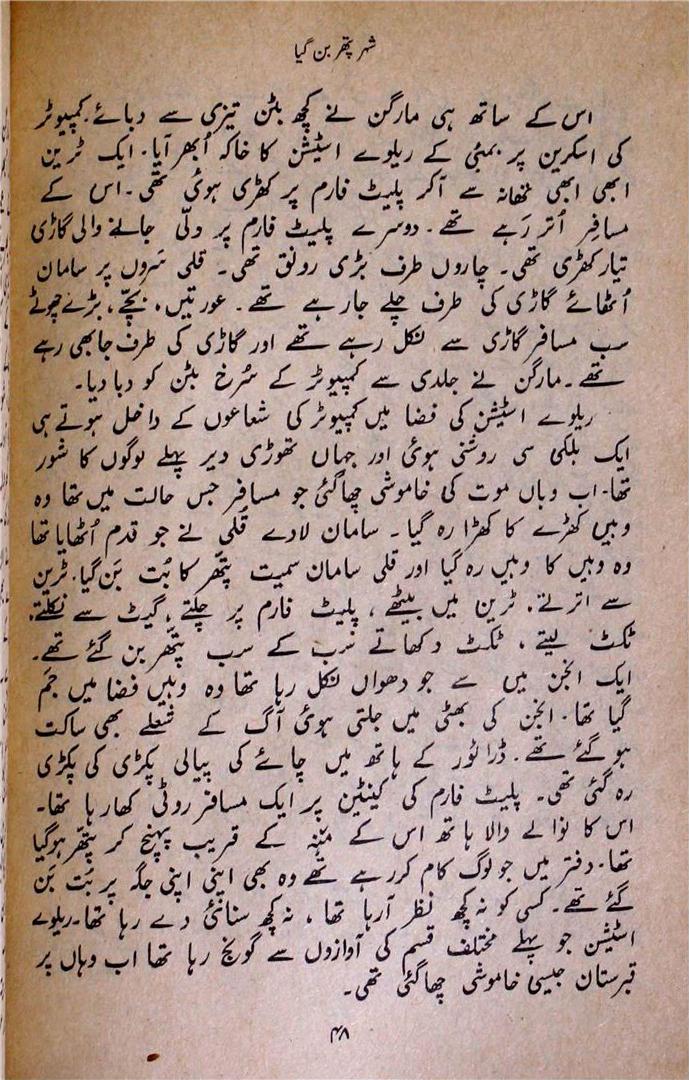 شہر پتھر بن گیا
اس کے ساتھ ہی مارگن نے کچھ بٹن تیزی سے دبائے۔ کمپیوٹر
کی اسکرین پر بمبئی کے ریلوے اسٹیشن کا خاکہ اُبھر آیا۔ ایک ٹرین
ابھی ابھی تھانہ سے آکر پلیٹ فارم پر کھڑی ہوئی تھی۔ اس کے
مسافر اُتر رہے تھے۔ دوسرے پلیٹ فارم پر دلّی جانے والی گاڑی
تیار کھڑی تھی۔ چاروں طرف بڑی رونق تھی۔ قلی سَروں پر سامان
اُٹھائے گاڑی کی طرف چلے جارہے تھے۔ عورتیں، بچّے، بڑے چھوٹے
سب مسافر گاڑی سے نکل رہے تھے اور گاڑی کی طرف جابھی رہے
تھے۔ مارگن نے جلدی سے کمپیوٹر کے سُرخ بٹن کو دبا دیا۔
ریلوے اسٹیشن کی فضا میں کمپیوٹر کی شعاعوں کے داخل ہوتے ہی
ایک ہلکی سی روشنی ہوئی اور جہاں تھوڑی دیر پہلے لوگوں کا شور
تھا۔ اب وہاں موت کی خاموشی چھاگئی جو مسافر جس حالت میں تھا وہ
وہیں کھڑے کا کھڑا رہ گیا۔ سامان لادے قُلی نے جو قدم اُٹھایا تھا
وہ وہیں کا وہیں رہ گیا اور قلی سامان سمیت پتّھر کا بُت بَن گیا۔ ٹرین
سے اترتے، ٹرین میں بیٹھے، پلیٹ فارم پر چلتے، گیٹ سے نکلتے،
ٹکٹ لیتے، ٹکٹ دکھاتے سَب کے سَب پتّھر بن گئے تھے۔
ایک انجن میں سے جو دھواں نکل رہا تھا وہ وہیں فضا میں جَم
گیا تھا۔ انجن کی بھٹی میں جلتی ہوئی آگ کے شعلے بھی ساکت
ہو گئے تھے۔ ڈرائور کے ہاتھ میں چائے کی پیالی پکڑی کی پکڑی
رہ گئی تھی۔ پلیٹ فارم کی کینٹین پر ایک مسافر روٹی کھا رہا تھا۔
اس کا نوالے والا ہاتھ اس کے منّہ کے قریب پہنچ کر پتّھر ہوگیا
تھا۔ دفتر میں جو لوگ کام کررہے تھے وہ بھی اپنی اپنی جگہ پر بُت بَن
گئے تھے۔ کسی کو نہ کچھ نظر آرہا تھا، نہ کچھ سنائی دے رہا تھا۔ ریلوے
اسٹیشن جو پہلے مختلف قسم کی آوازوں سے گونج رہا تھا اب وہاں پر
قبرستان جیسی خاموشی چھاگئی تھی۔
۴۸